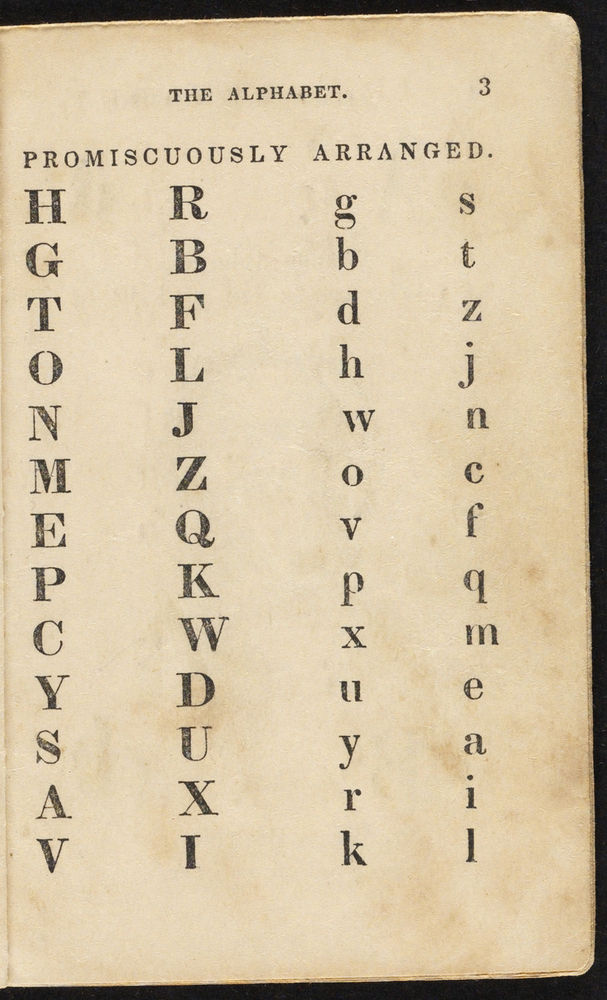 THE ALPHABET. 3
PROMISCUOUSLY ARRANGED.
H R g s
G B b t
T F d z
O L h j
N J w n
M Z o c
E Q v f
P K p q
C W x m
Y D u e
S U y a
A X r i
V I k l